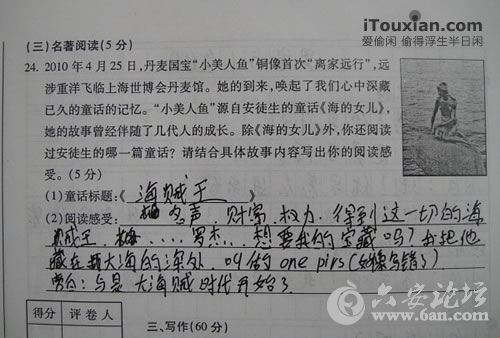 iTouxian.com
爱偷闲 偷得浮生半日闲
(三)名著阅读(5分)
24. 2010年4月25日,丹麦国宝“小美人鱼”铜像首次“离家远行”,远
涉重洋飞临上海世博会丹麦馆。她的到来,唤起了我们心中深藏
已久的童话的记忆。“小美人鱼”源自安徒生的童话《海的女儿》,
她的故事曾经伴随了几代人的成长。除《海的女儿》外,你还阅读
过安徒生的哪一篇童话?请结合具体故事内容写出你的阅读感
受。(5分)
(1)童话标题:《海贼王》
(2)阅读感受: 名声,财富,权力,得到这一切的海
贼王, ....罗杰...想要我的宝藏吗?我把他
藏在大海的深处,叫做one pirs(好像写错了)
旁白:与是 大海贼时代开始了
得分 评卷人
三、写作(60分)
六安论坛
www.6an.com